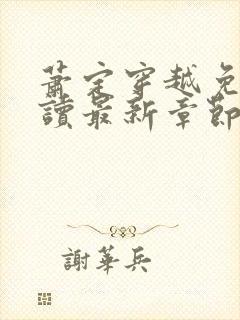 蕭定穿越免
讀最新章節
謝華兵